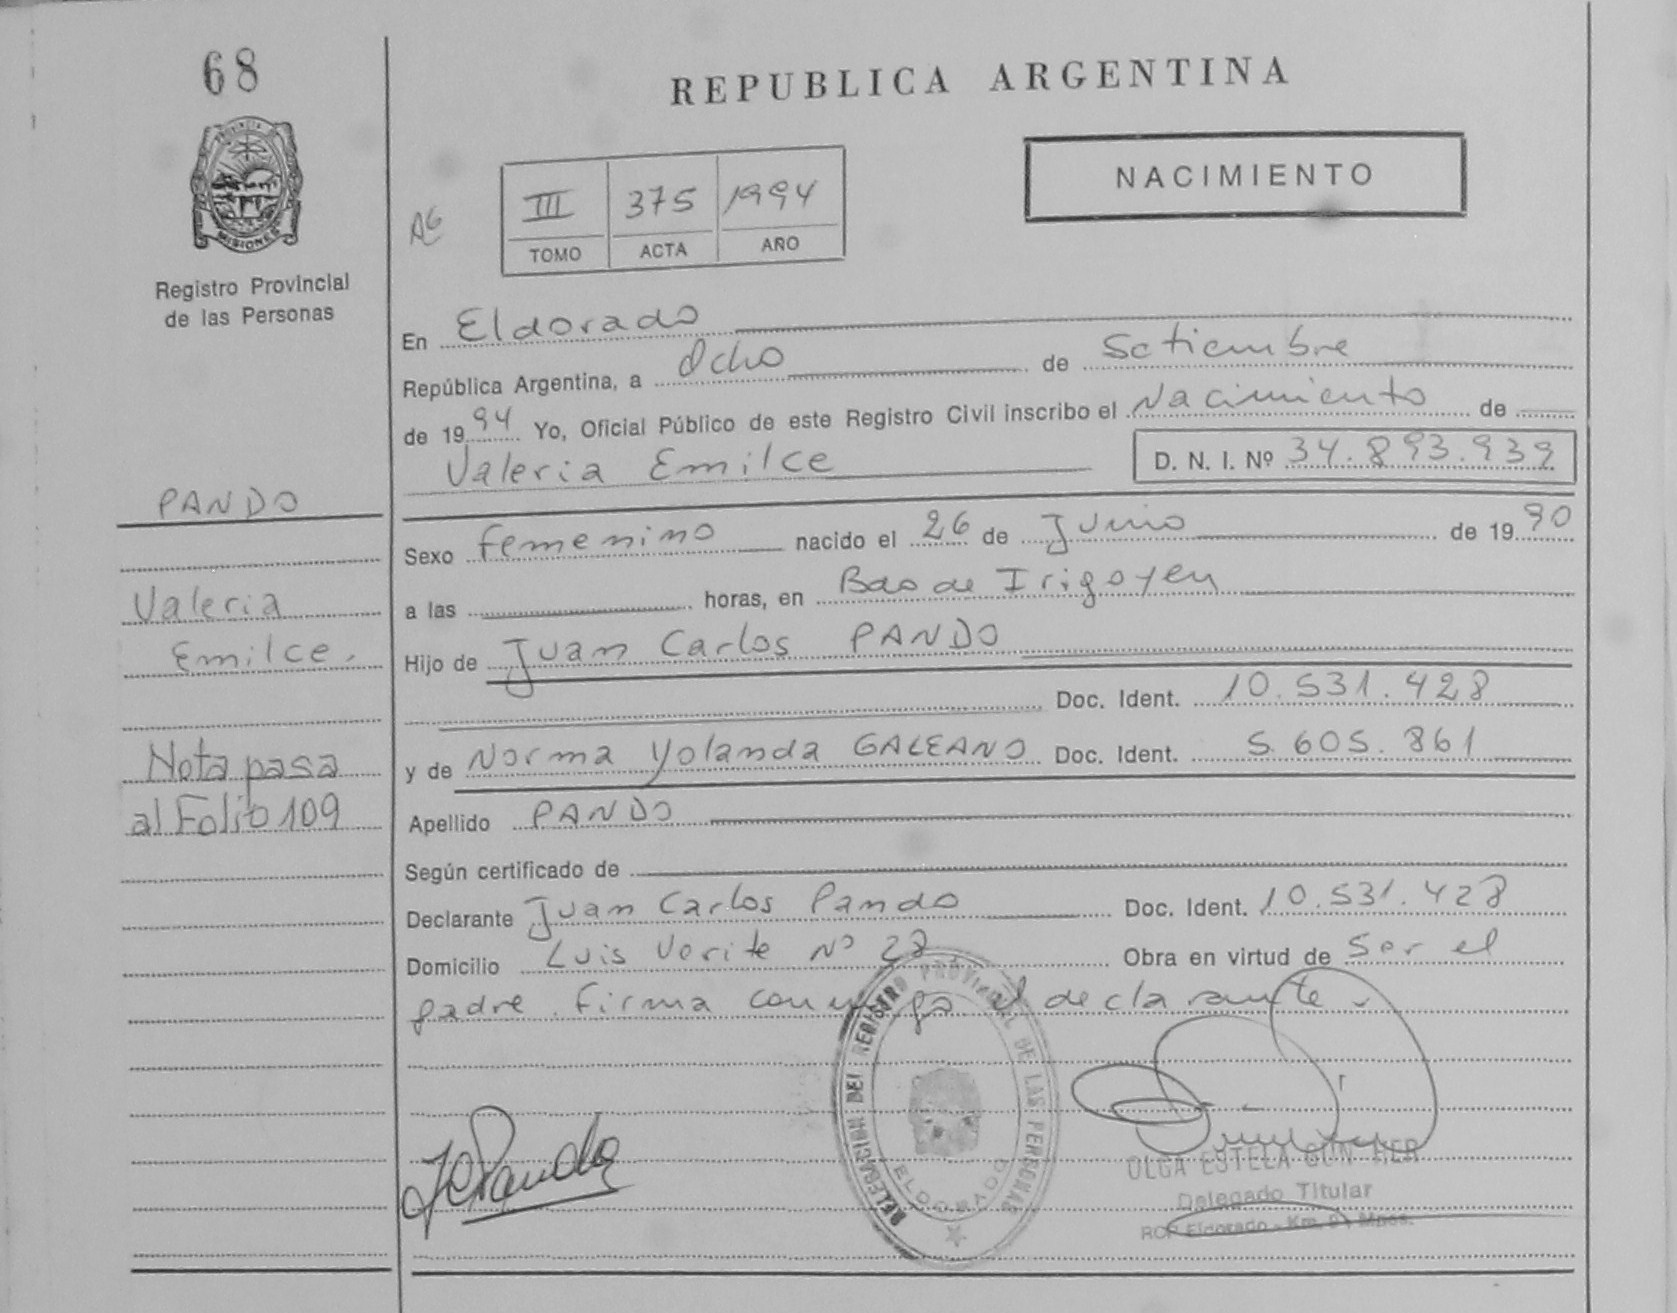 68
REPUBLICA ARGENTINA
PROVINCIA DE
MISIONES
Registro Provincial
de las Personas
AG
III 375 1994
TOMO ACTA AÑO
NACIMIENTO
En Eldorado
República Argentina, a Ocho de Setiembre
de 1994 Yo, Oficial Público de este Registro Civil inscribo el Nacimiento de
Valeria Emilce D. N. I. Nº 34.893.939
PANDO
Valeria
Emilce.
Nota pasa
al Folio 109
Sexo femenino nacido el 26 de Junio de 1990
a las horas, en Bdo de Irigoyen
Hijo de Juan Carlos PANDO
Doc. Ident. 10.531.428
y de Norma Yolanda GALEANO Doc. Ident. 5.605.861
Apellido PANDO
Según certificado de
Declarante Juan Carlos Pando Doc. Ident. 10.531.428
Domicilio Luis Verite Nº 28 Obra en virtud de ser el
padre. Firma conmigo el declarante.
JCPando
DELEGACION DEL REGISTRO PROVINCIAL DE LAS PERSONAS
ELDORADO
OLGA ESTELA
Delegado Titular
RCP Eldorado - Km. 9 - Mnes.